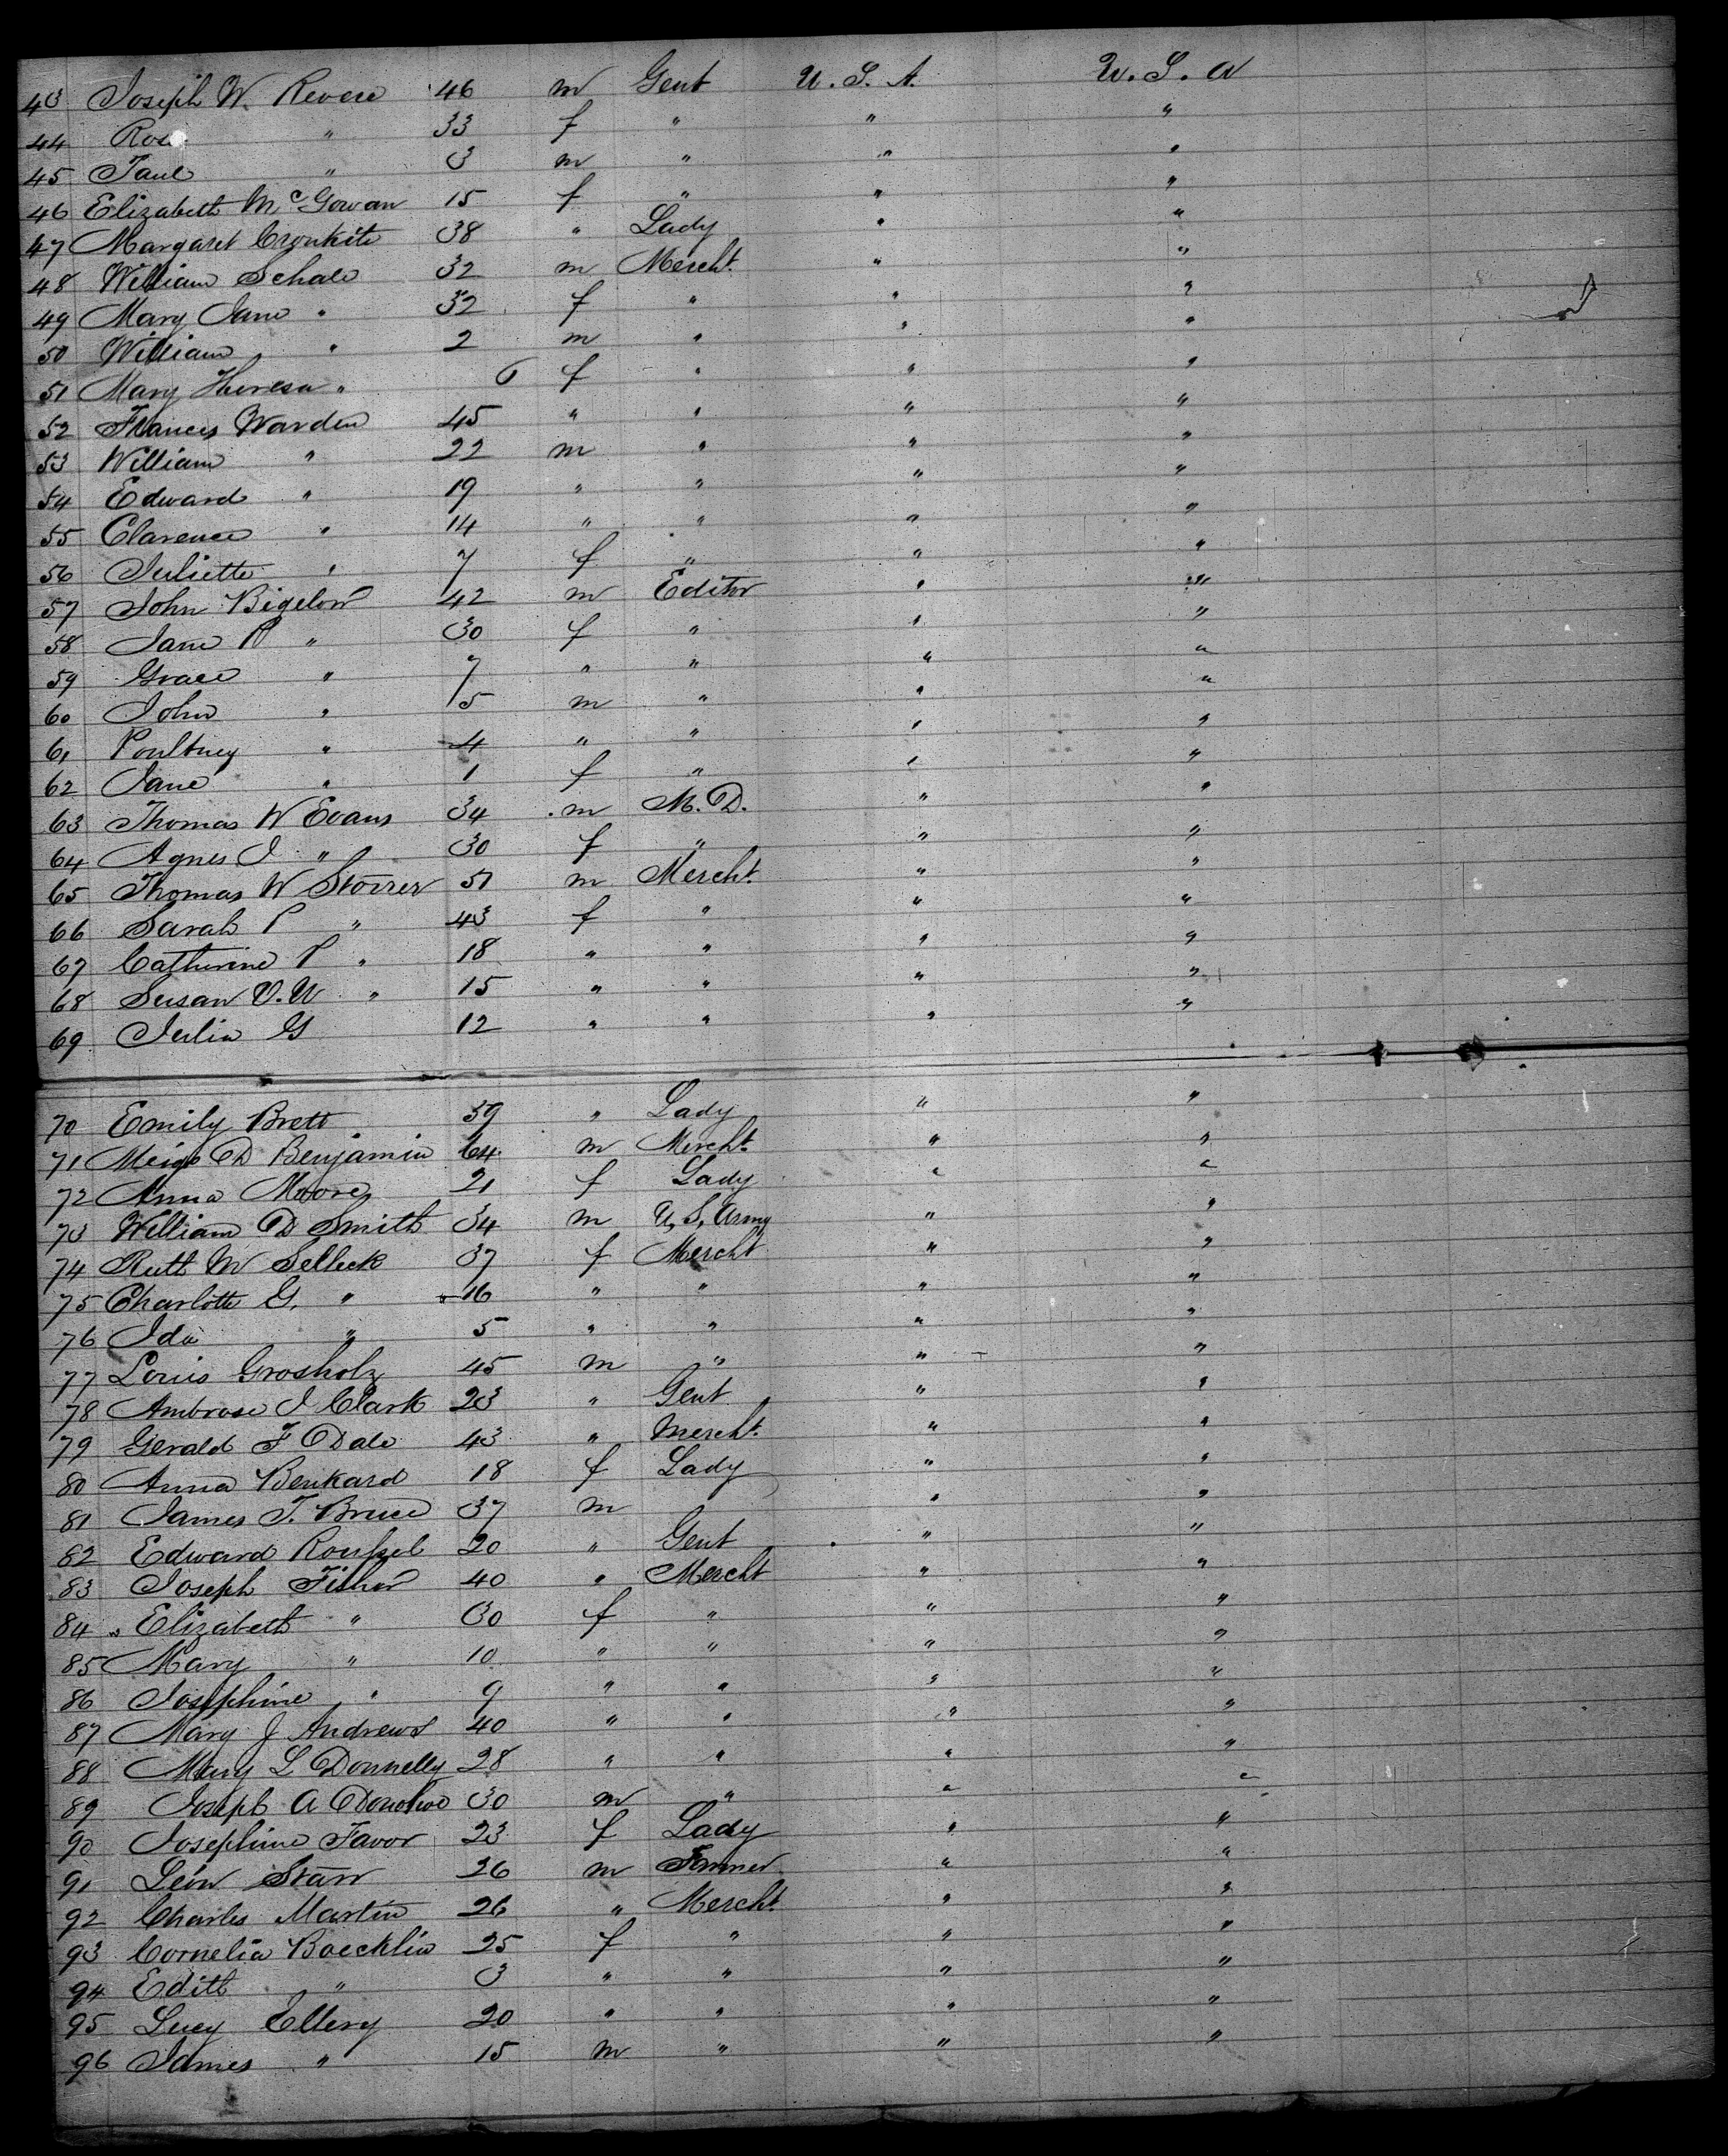 43 Joseph W. Revere 46 m Gent U.S.A. U.S.A
44 Rosa " 33 f " " "
45 Paul " 3 m " " "
46 Elizabeth McGowan 15 f " " "
47 Margaret Cronkite 38 " Lady " "
48 William Schall 32 m Mercht. " "
49 Mary Jane " 32 f " " "
50 William " 2 m " " "
51 Mary Theresa " 6 f " " "
52 Frances Warden 45 " " " "
53 William " 22 m " " "
54 Edward " 19 " " " "
55 Clarence " 14 " " " "
56 Juliette " 7 f " " "
57 John Bigelow 42 m Editor " "
58 Jane P " 30 f " " "
59 Grace " 7 " " " "
60 John " 5 m " " "
61 Poultney " 4 " " " "
62 Jane " 1 f " " "
63 Thomas W Evans 34 m M.D. " "
64 Agnes J " 30 f " " "
65 Thomas W Storrer 51 m Mercht. " "
66 Sarah P " 43 f " " "
67 Catherine P " 18 " " " "
68 Susan V.W " 15 " " " "
69 Julia G 12 " " " "
70 Emily Brett 59 " Lady " "
71 Meigs D Benjamin 64 m Mercht. " "
72 Anna Moore 21 f Lady " "
73 William D Smith 34 m U,S, Army " "
74 Ruth M Selleck 37 f Mercht " "
75 Charlotte G. " 16 " " " "
76 Ida " 5 " " " "
77 Louis Grosholz 45 m " " "
78 Ambrose J Clark 23 " Gent " "
79 Gerald F Dale 43 " Mercht. " "
80 Anna Benkard 18 f Lady " "
81 James T. Bruce 37 m " "
82 Edward Roussel 20 " Gent " "
83 Joseph Fisher 40 " Mercht " "
84 " Elizabeth " 30 f " " "
85 Mary " 10 " " " "
86 Josephine " 9 " " " "
87 Mary J Andrews 40 " " " "
88 Mary L Donnelly 28 " " " "
89 Joseph A Donohoe 30 m " " "
90 Josephine Favor 23 f Lady " "
91 Léon Starr 26 m Farmer " "
92 Charles Martin 26 " Mercht. " "
93 Cornelia Boecklin 25 f " " "
94 Edith " 3 " " " "
95 Lucy Ellery 20 " " " "
96 James " 15 m " " "